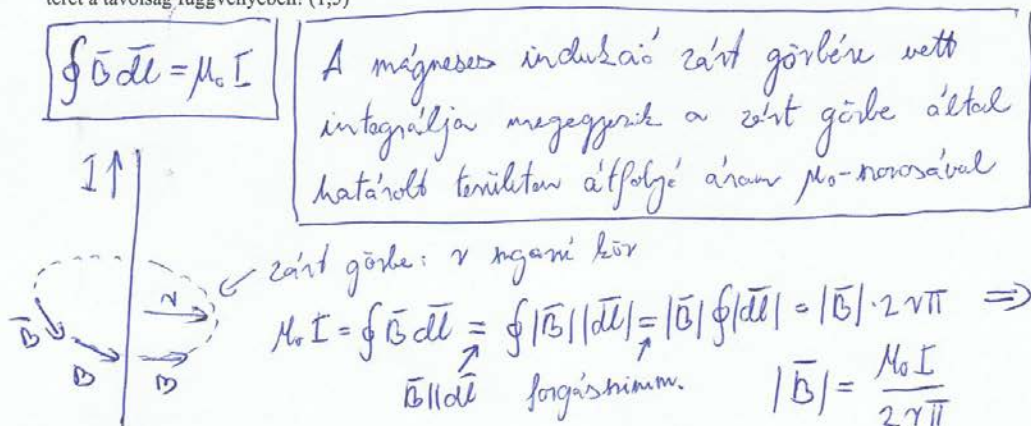 teret a távolság függvényében! (1,5)
∮ B̄ dl̄ = μ₀ I
A mágneses indukció zárt görbére vett
integrálja megegyezik a zárt görbe által
határolt területen átfolyó áram μ₀-szorosával
I↑
zárt görbe: r sugarú kör
r
μ₀ I = ∮ B̄ dl̄ = ∮ |B̄| |dl̄| = |B̄| ∮ |dl̄| = |B̄| · 2rπ ⇒
B̄ B B
B̄ || dl̄ forgásszimm. |B̄| = μ₀ I / 2rπ